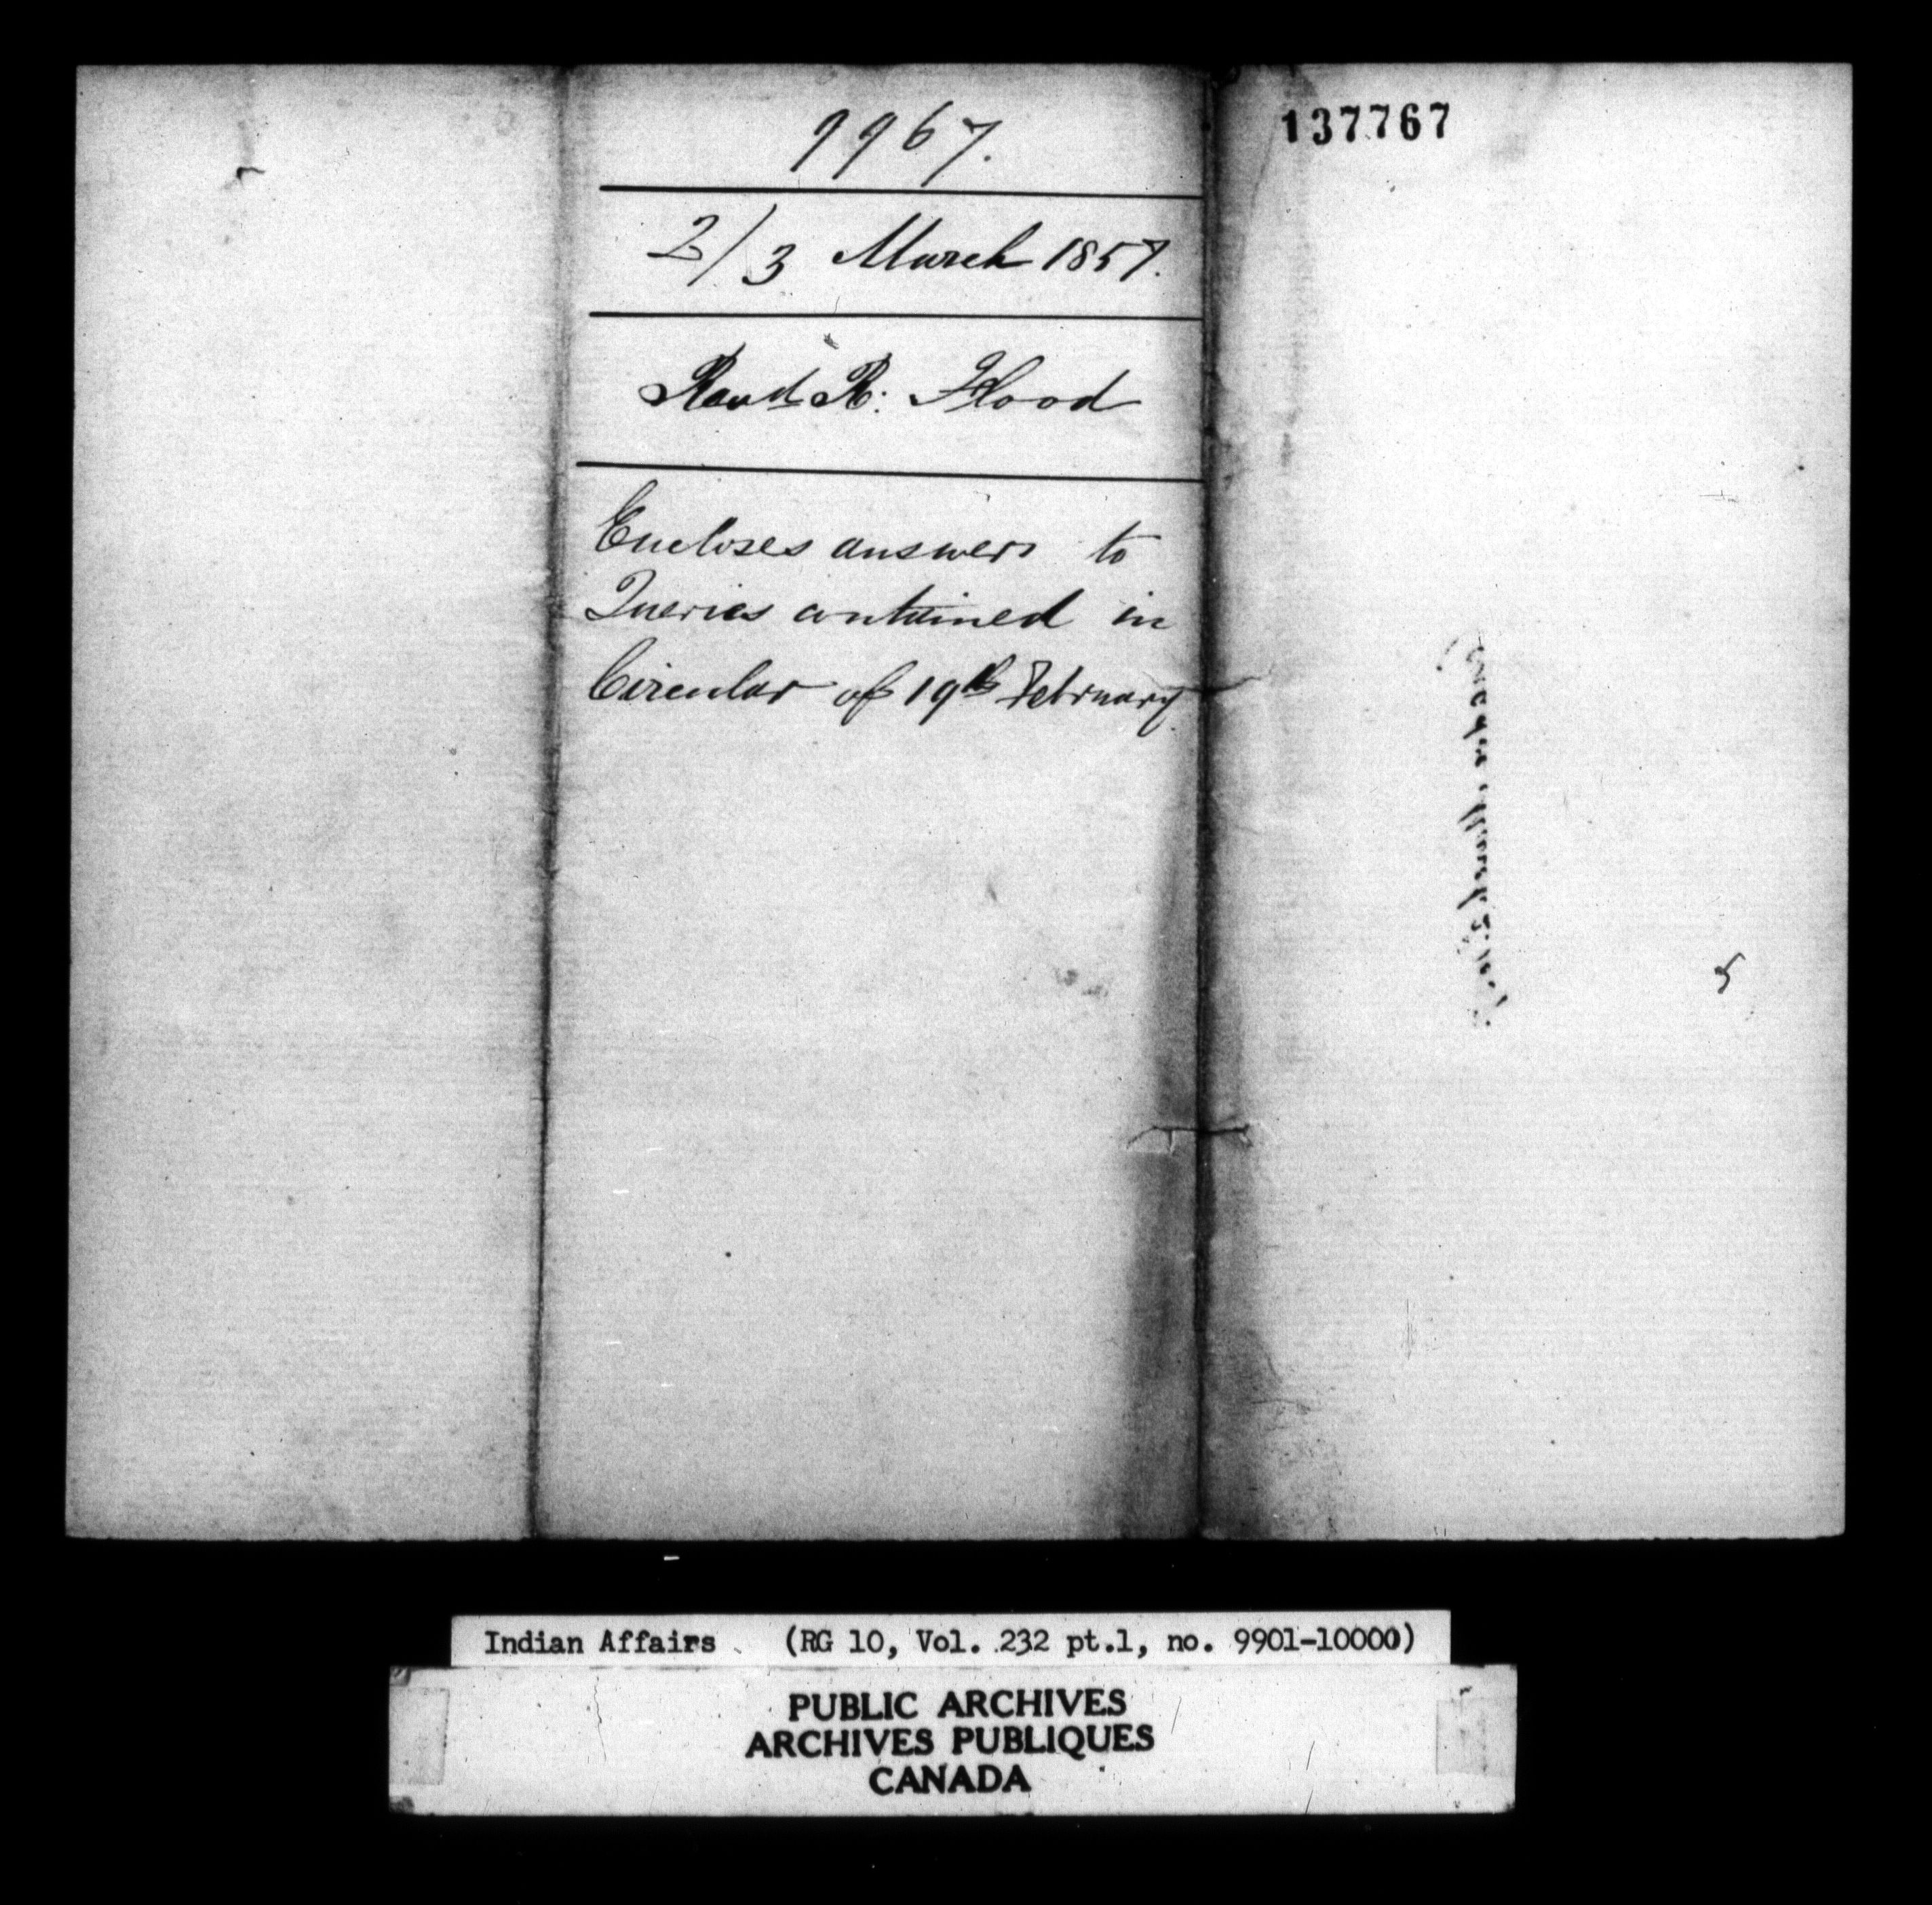 9967.
137767
2/3 March 1857.
Revd R. Flood
Encloses answers to
Queries contained in
Circular of 19th February.
5
Indian Affairs (RG 10, Vol. 232 pt.1, no. 9901-10000)
PUBLIC ARCHIVES
ARCHIVES PUBLIQUES
CANADA